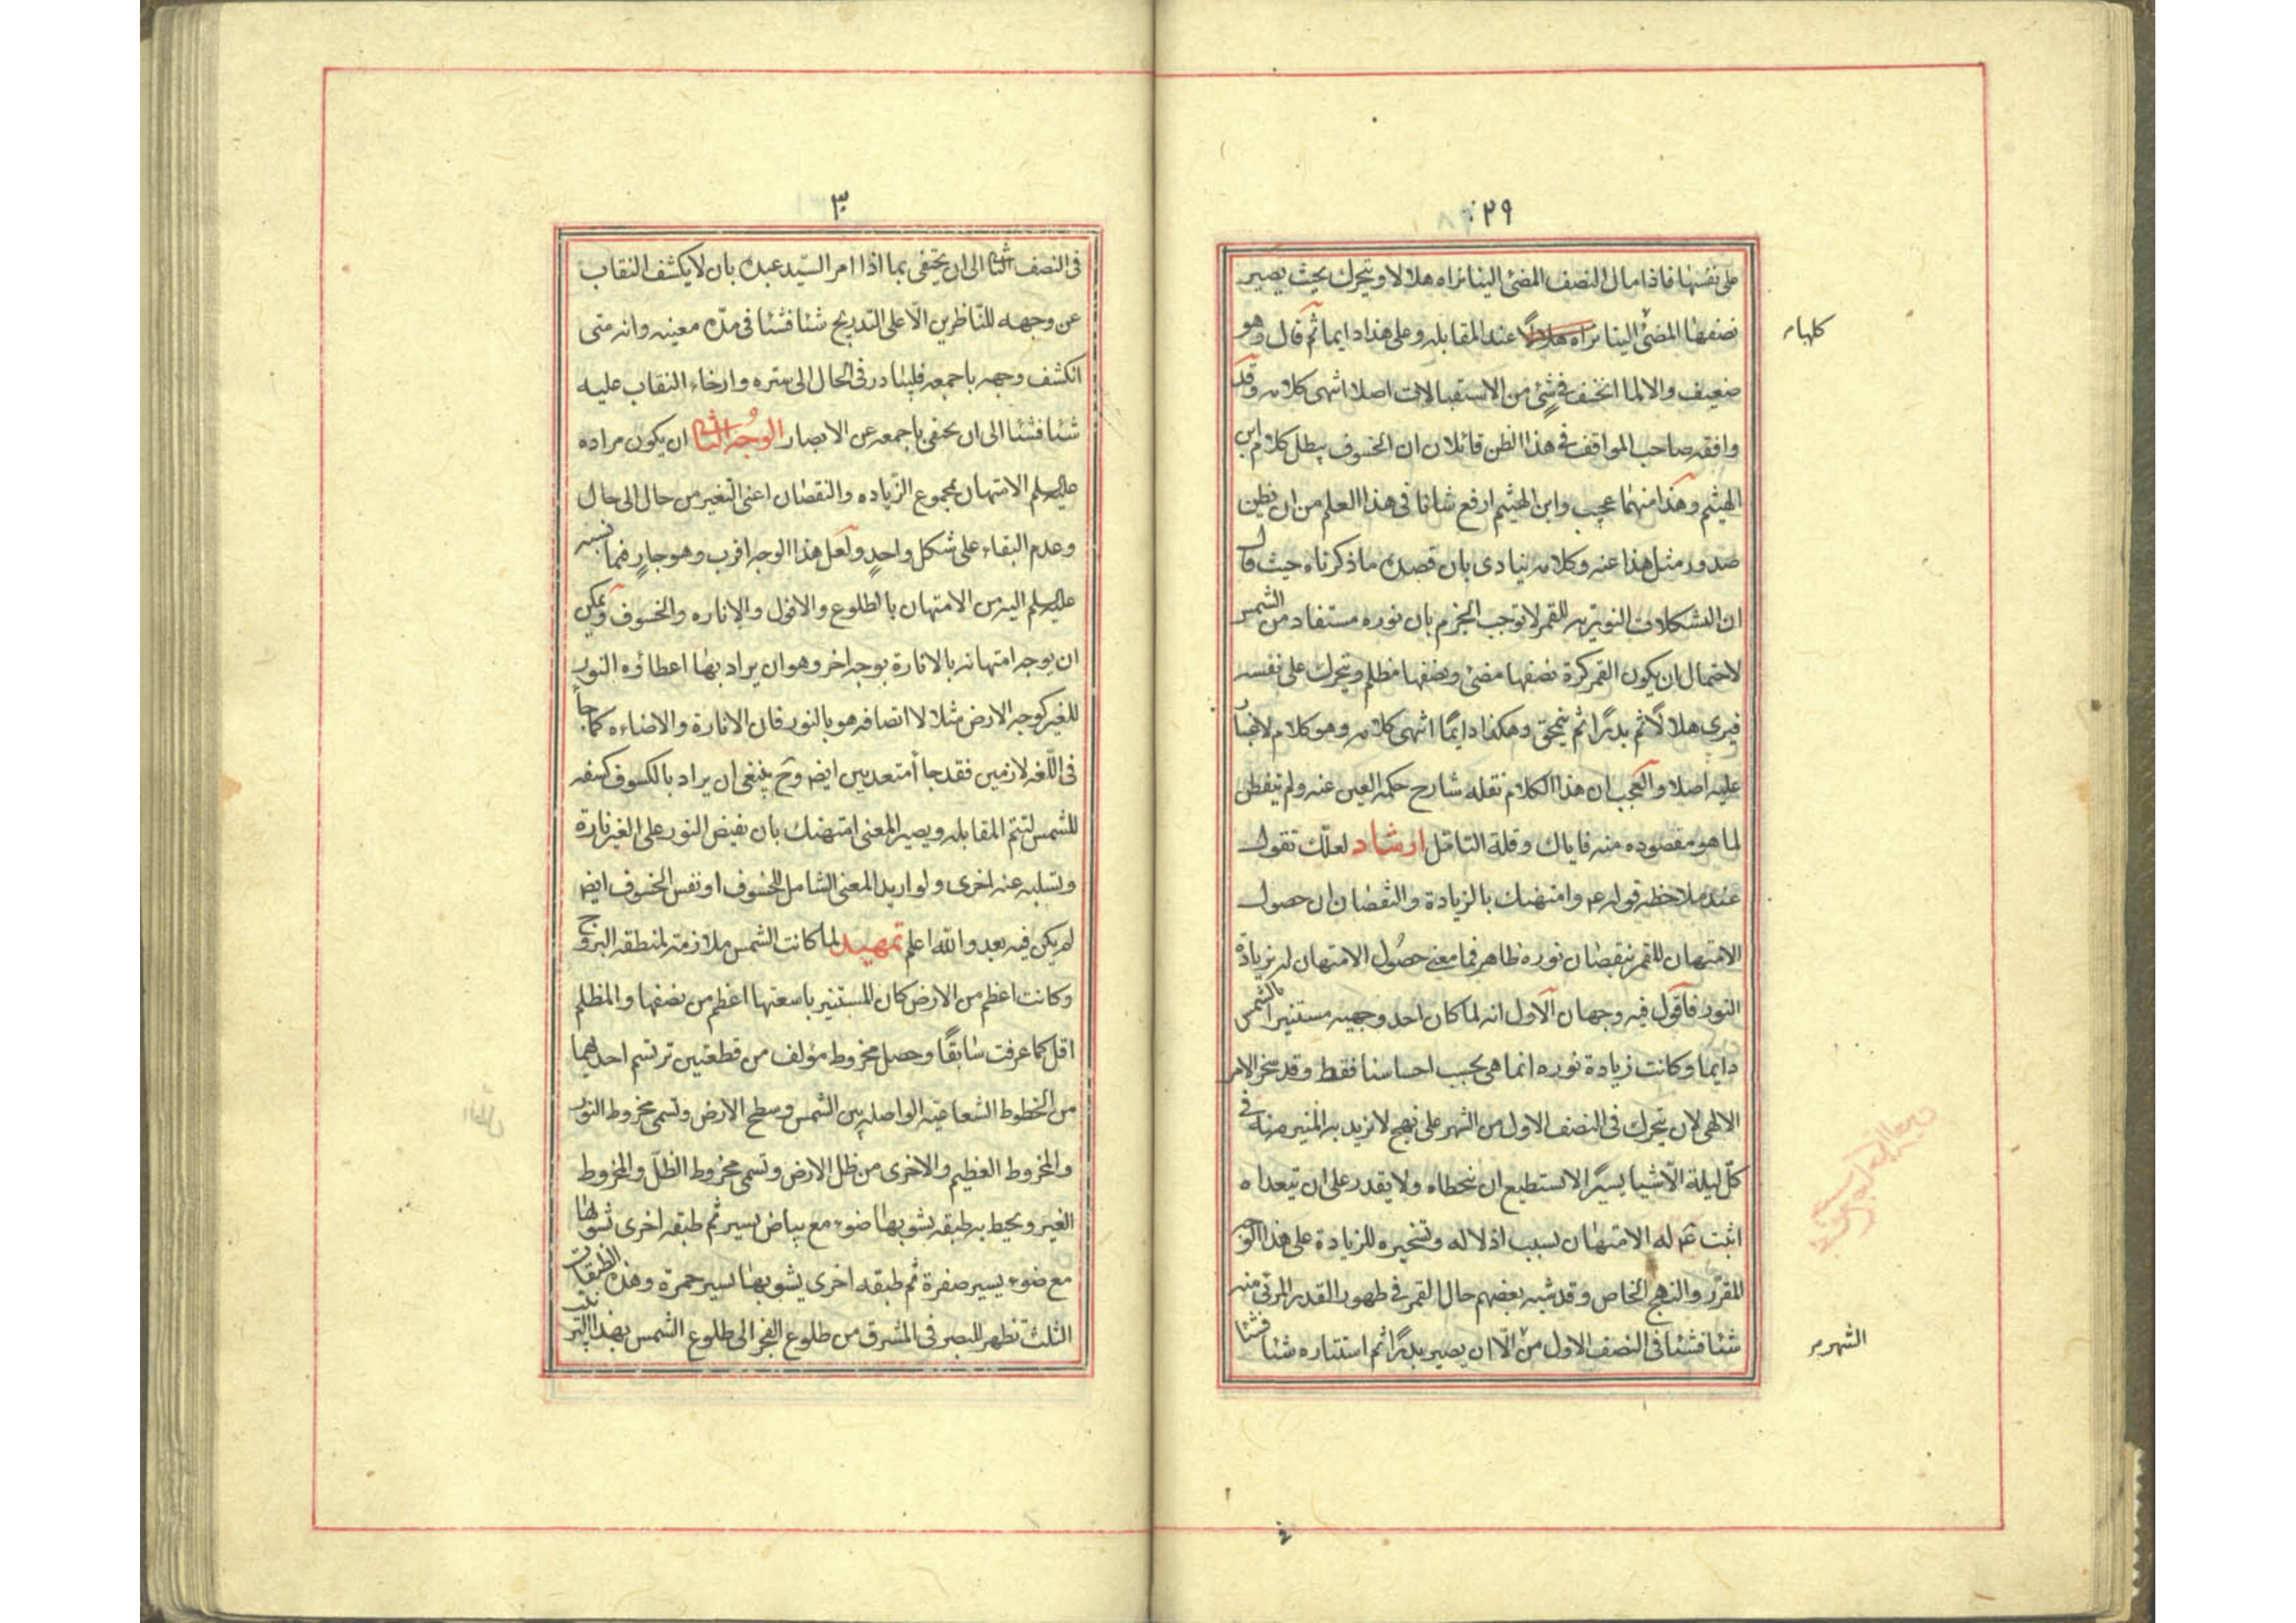 ٢٩
على نفسها فاذا مال النصف المضئ الينا نراه هلالا و يتحرك بحيث يصير
نصفها المضئ الينا نراه هلالا عند المقابله و على هذا دايما ثم قال و هو
كلها
ضعيف و الا لما انخسف فى شئ من الاستقبالات اصلا انتهى كلامه و قد
وافقه صاحب المواقف فى هذا الظن قائلا ان الخسوف يبطل كلام ابن
الهيثم و هذا منهما عجيب و ابن الهيثم ارفع شانا فى هذا العلم من ان يظن
صدور مثل هذا عنه و كلامه ينادى بان قصده ما ذكرناه حيث قال
ان التشكلات النوريه للقمر لا توجب الجزم بان نوره مستفاد من الشمس
لاحتمال ان يكون القمر كرة نصفها مضئ و نصفها مظلم و يتحرك على نفسه
فيرى هلالًا ثم بدرًا ثم ينمحق و هكذا دايمًا انتهى كلامه و هو كلام لا غبار
عليه اصلا و العجب ان هذا الكلام نقله شارح حكمه العين عنه و لم يتفطن
لما هو مقصوده منه فاياك و قلة التامل ارشاد لعلّك تقول
عند ملاحظه قوله عم و امتهنك بالزيادة و النقصان ان حصول
الامتهان للقمر بنقصان نوره ظاهر فما معنى حصُول الامتهان له بزيادة
النور فاقول فيه وجهان الاول انه لما كان احد وجهيه مستنيرا بالشمس
دايما و كانت زيادة نوره انما هى بحسب احساسنا فقط و قد سخر الامر
الالهى لان يتحرك فى النصف الاول من الشهر على نهج لا يزيد به المنير منه فى
كلّ ليلة الّا شيا يسيرًا لا يستطيع ان يتخطاه و لا يقدر على ان يتعداه
اثبت عم له الامتهان بسبب اذلاله و تسخيره للزيادة على هذا الوجه
المقرّر و النهج الخاص و قد شبه بعضهم حال القمر فى ظهور القدر المرئى منه
شئا فشئا فى النصف الاول من الّا ان يصير بدرًا ثم استتاره شئا فشئا
الشهر
٣٠
فى النصف الثانى الى ان يختفى بما اذا امر السيّد عبده بان لا يكشف النقاب
عن وجهه للنّاظرين الّا على التدريج شئا فشئا فى مدّه معينه و انه متى
انكشف وجهه باجمعه فليبادر فى الحال الى ستره و ارخاء النقاب عليه
شئا فشئا الى ان يختفى باجمعه عن الابصار الوجُه الثانى ان يكون مراده
عليه السلم الامتهان بمجموع الزّياده و النقصان اعنى التغير من حال الى حال
و عدم البقاء على شكل واحدٍ و لعل هذا الوجه اقرب و هو جارٍ فيما نسبه
عليه السلم اليه من الامتهان بالطلوع و الافول و الاناره و الخسوف و يمكن
ان يوجه امتهانه بالانارة بوجه اخر و هو ان يراد بها اعطاؤه النور
للغير كوجه الارض مثلا لا اتصافه هو بالنور فان الانارة و الاضاءه كما جاأ
فى اللّغه لازمين فقد جاأ متعديين ايضه و ح ينبغى ان يراد بالكسوف كسفه
للشمس لتتم المقابله و يصير المعنى امتهنك بان تفيض النور على الغير تارة
و تسلبه عنه اخرى و لو اريد المعنى الشامل للخسوف او نفس الخسوف ايضه
لم يكن فيه بعد و اللّه اعلم تمهيد لما كانت الشمس ملازمة لمنطقه البروج
و كانت اعظم من الارض كان المستنير باشعتها اعظم من نصفها و المظلم
اقل كما عرفت سٰابقًا و حصل مخروط مؤلف من قطعتين ترتسم احديهما
من الخطوط الشعاعيّه الواصله بين الشمس و سطح الارض و تسمى مخروط النور
و المخروط العظيم و الاخرى من ظل الارض و تسمى مخروط الظلّ و المخروط
الغير و يحيط به طبقه يشوبها ضوء مع بياض يسير ثم طبقه اخرى تشوبها
مع ضوء يسير صفرة ثم طبقه اخرى يشوبها يسير حمرة و هذه الطبقات
الثلث تظهر للبصر فى المشرق من طلوع الفجر الى طلوع الشمس بهذا الترتيب